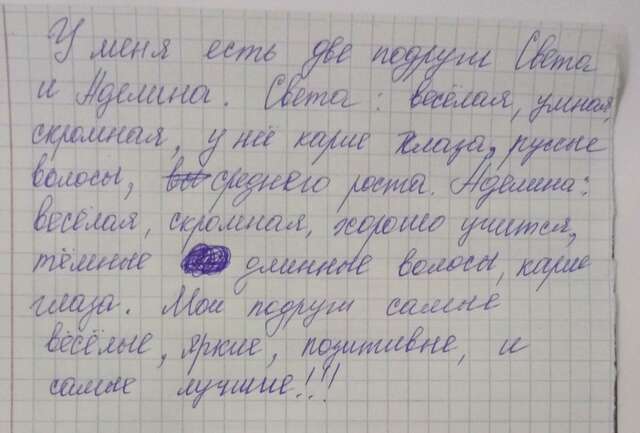 У меня есть две подруги Света
и Аделина. Света: весёлая, умная,
скромная, у неё карие глаза, русые
волосы, среднего роста. Аделина:
весёлая, скромная, хорошо учится,
тёмные длинные волосы, карие
глаза. Мои подруги самые
весёлые, яркие, позитивные, и
самые лучшие!!!